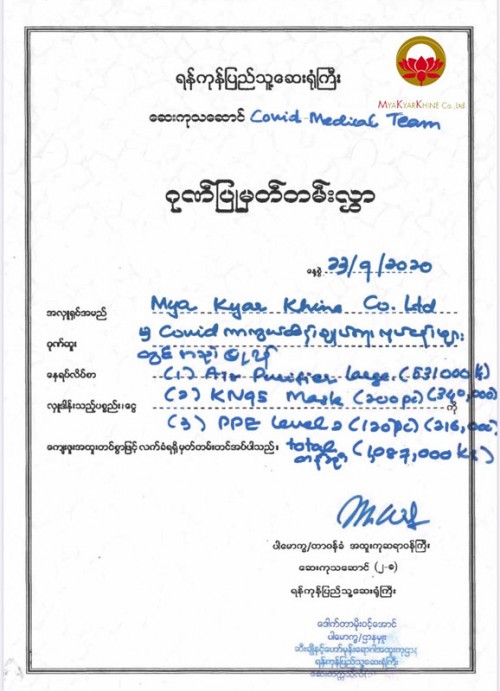 ရန်ကုန်ပြည်သူ့ဆေးရုံကြီး
MYAKYARKHINE Co.,Ltd.
ဆေးကုသဆောင် Covid Medical Team
ဂုဏ်ပြုမှတ်တမ်းလွှာ
နေ့စွဲ ၂၃/၇/၂၀၂၀
အလှူရှင်အမည် Mya Kyar Khine Co. Ltd
ဂုဏ်ထူး မှ Covid
နေရပ်လိပ်စာ (1) Air Purifier large (531000k)
လှူဒါန်းသည့်ပစ္စည်း၊ငွေ (2) KN95 Mask (200pc) (340,000) ကို
(3) PPE Level 2 (120pc) (216,000)
ကျေးဇူးအထူးတင်စွာဖြင့် လက်ခံရရှိ မှတ်တမ်းတင်အပ်ပါသည်။ total (1,087,000 ks)
ပါမောက္ခ/တာဝန်ခံ အထူးကုဆရာဝန်ကြီး
ဆေးကုသဆောင် (၂-၈)
ရန်ကုန်ပြည်သူ့ဆေးရုံကြီး
ဒေါက်တာမိုးဝင့်အောင်
ပါမောက္ခ/ဌာနမှူး
ရန်ကုန်ပြည်သူ့ဆေးရုံကြီး